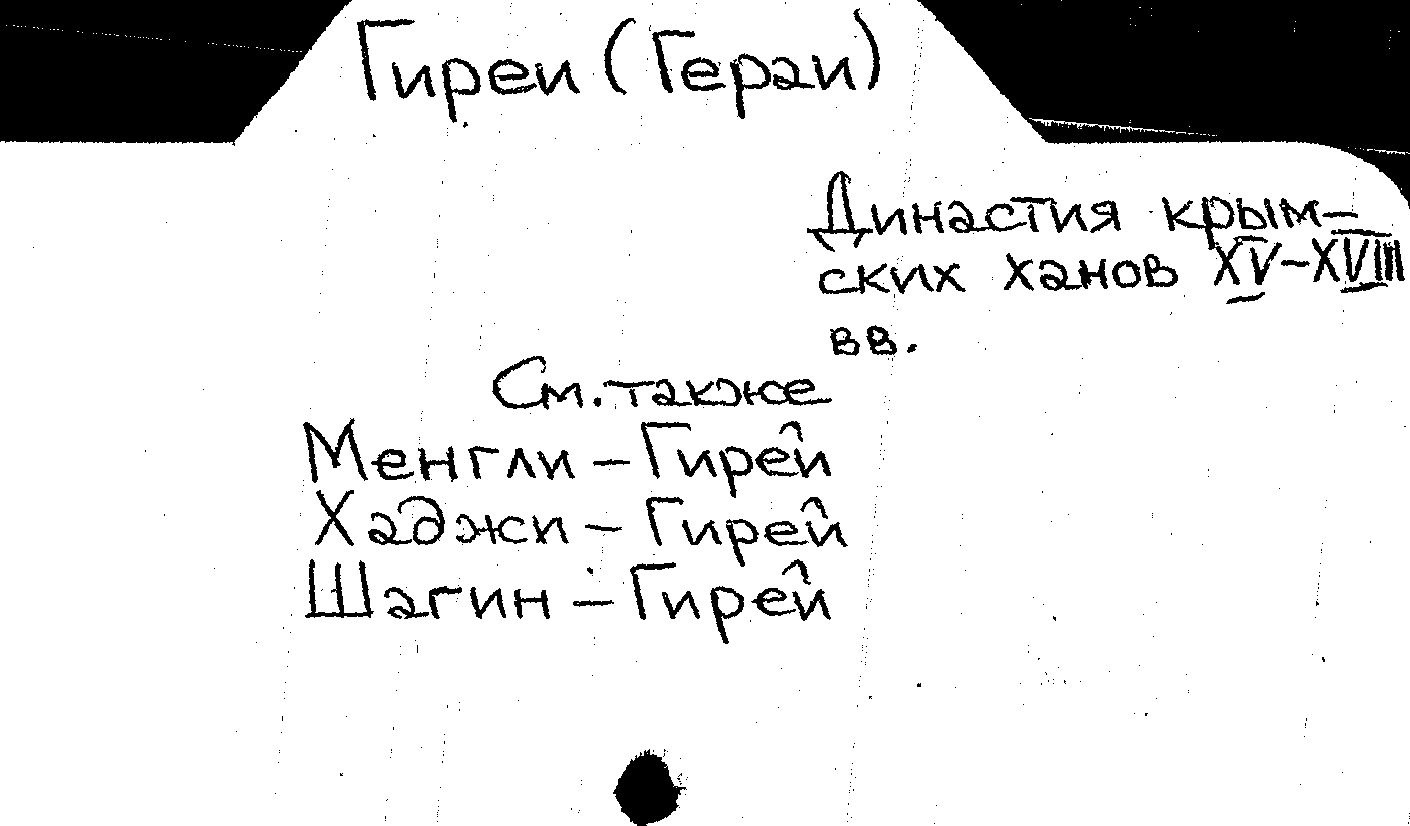 Гиреи (Гераи)
Династия крым-
ских ханов XV-XVIII
вв.
См. также
Менгли - Гирей
Хаджи - Гирей
Шагин - Гирей